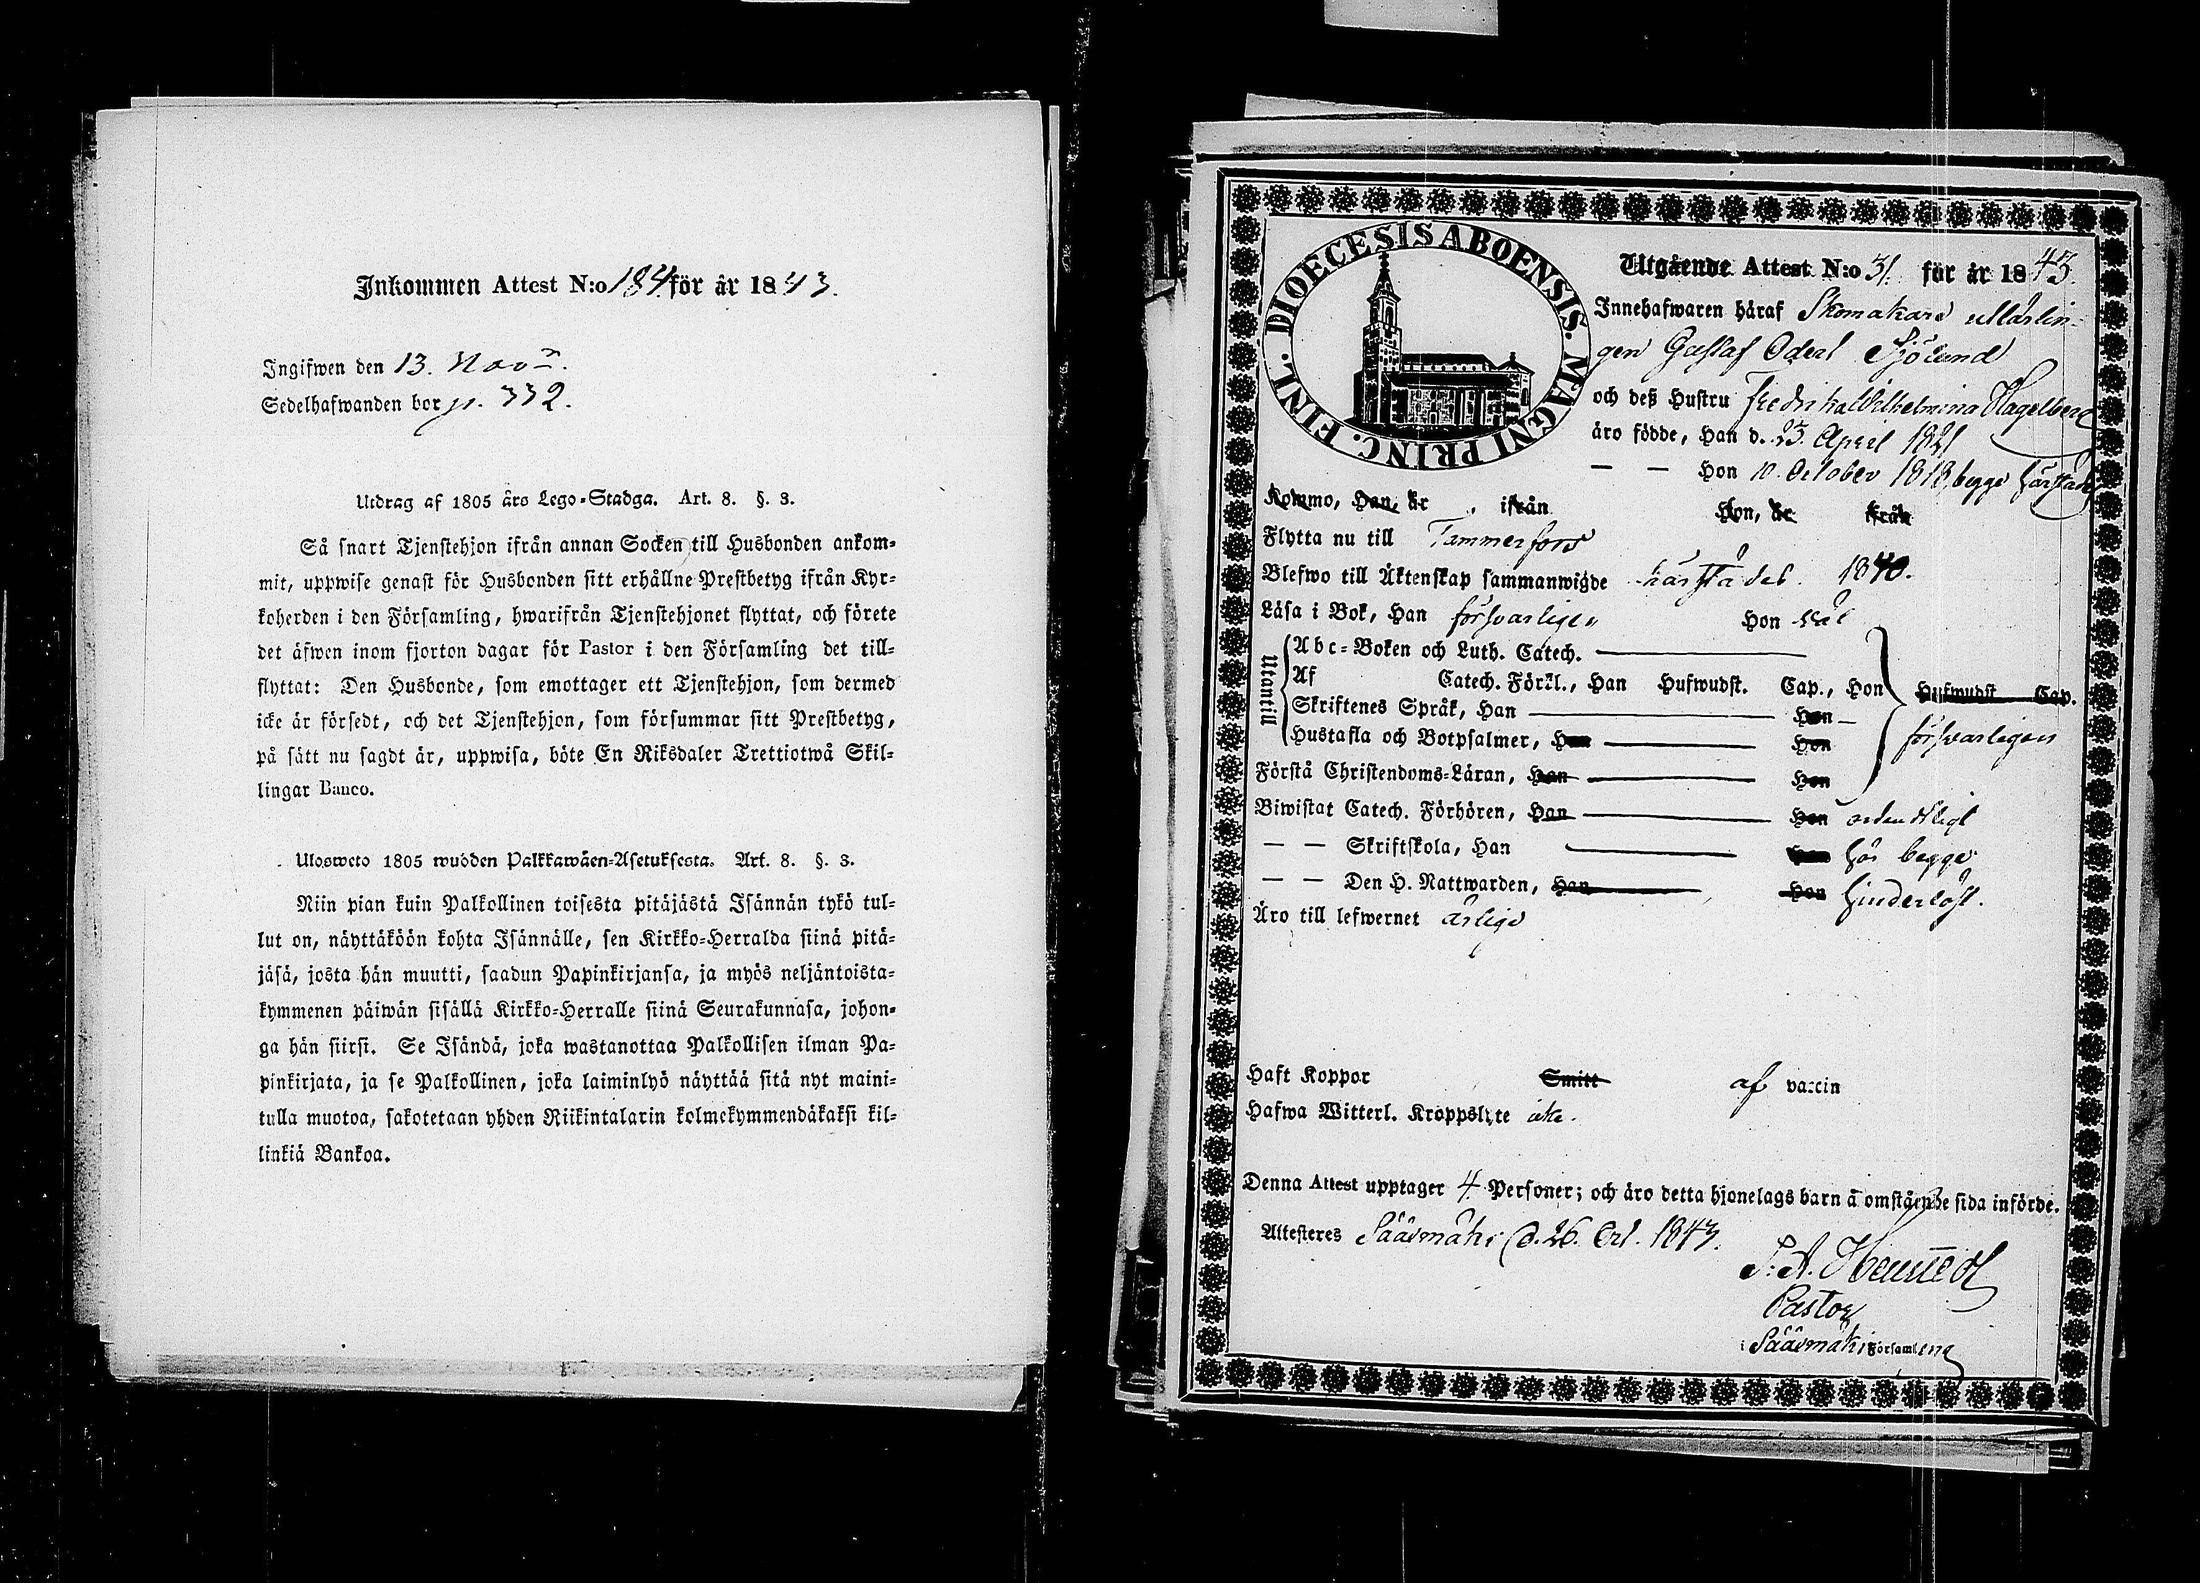 Inkommen Attest N:o 184 för år 1843.
Ingifwen den 13. Nov.
Sedelhafwanden bor p. 332.
Utdrag af 1805 års Lego-Stadga. Art. 8. §. 3.
Så snart Tjenstehjon ifrån annan Socken till Husbonden ankom-
mit, uppwise genast för Husbonden sitt erhållne Prestbetyg ifrån Kyr-
koherden i den Församling, hwarifrån Tjenstehjonet flyttat, och förete
det äfwen inom fjorton dagar för Pastor i den Församling det till-
flyttat: Den Husbonde, som emottager ett Tjenstehjon, som dermed
icke är försedt, och det Tjenstehjon, som försummar sitt Prestbetyg,
på sätt nu sagdt är, uppwisa, böte En Riksdaler Trettiotwå Skil-
lingar Banco.
Ulosweto 1805 wuoden Palkkawäen-Asetuksesta. Art. 8. §. 3.
Niin pian kuin Palkollinen toisesta pitäjästä Isännän tykö tul-
lut on, näyttäköön kohta Isännälle, sen Kirkko-Herralda siinä pitä-
jäsä, josta hän muutti, saadun Papinkirjansa, ja myös neljäntoista-
kymmenen päiwän sisällä Kirkko-Herralle siinä Seurakunnasa, johon-
ga hän siirsi. Se Isändä, joka wastanottaa Palkollisen ilman Pa-
pinkirjata, ja se Palkollinen, joka laiminlyö näyttää sitä nyt maini-
tulla muotoa, sakotetaan yhden Riikintalarin kolmekymmendäkaksi kil-
linkiä Bankoa.
DIOECESIS ABOENSIS. MAGNI PRINC. FINL.
Utgående Attest N:o 31. för år 1843.
Innehafwaren häraf Skomakare Mårlin-
gen Gustaf Odert Sjölund
och deß Hustru Fredrika Wilhelmina Hagelberg
äro födde, Han d. 23. April 1821
— — Hon 10. October 1818, begge härstädes
Kommo, Han, år , ifrån Hon, år ifrån
Flytta nu till Tammerfors
Blefwo till Äktenskap sammanwigde härstädes. 1840.
Läsa i Bok, Han försvarligen Hon väl
Utantill
Abc-Boken och Luth. Catech.
Af Catech. Förkl., Han Hufwudst. Cap., Hon Hufwudst Cap.
Skriftenes Språk, Han Hon
Hustafla och Botpsalmer, Han Hon försvarligen
Förstå Christendoms-Läran, Han Hon
Biwistat Catech. Förhören, Han Hon ordentligt
— — Skriftskola, Han Hon hör begge
— — Den H. Nattwarden, Han Hon hinderlöst.
Äro till lefwernet ärlige
Haft Koppor Smitt af vaccin
Hafwa Witterl. Kroppslyte icke.
Denna Attest upptager 4 Personer; och äro detta hjonelags barn å omstående sida införde.
Attesteres Sääsmäki d. 26. Oct. 1843.
Pastor
i Sääsmäki Församling